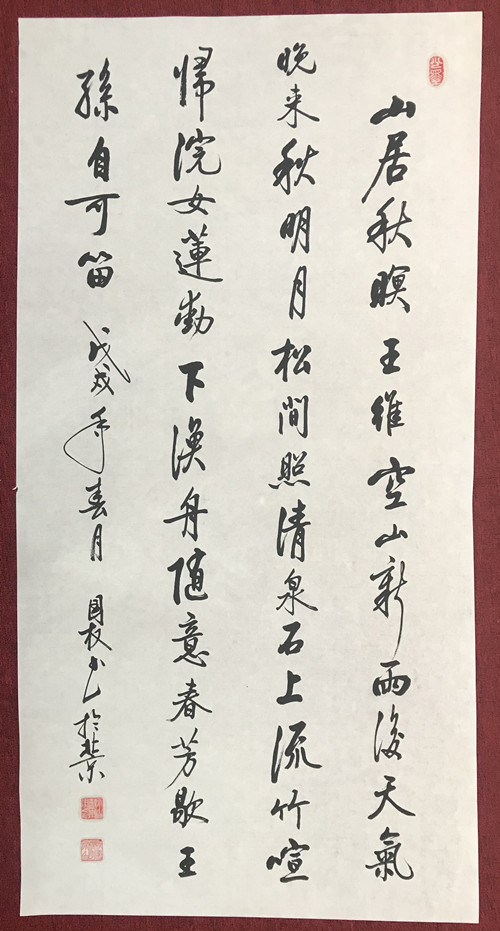 山居秋暝王維空山新雨後天氣
晚来秋明月松間照清泉石上流竹喧
帰浣女蓮動下漁舟随意春芳歇王
孫自可留戊戌年春月国权书於北京